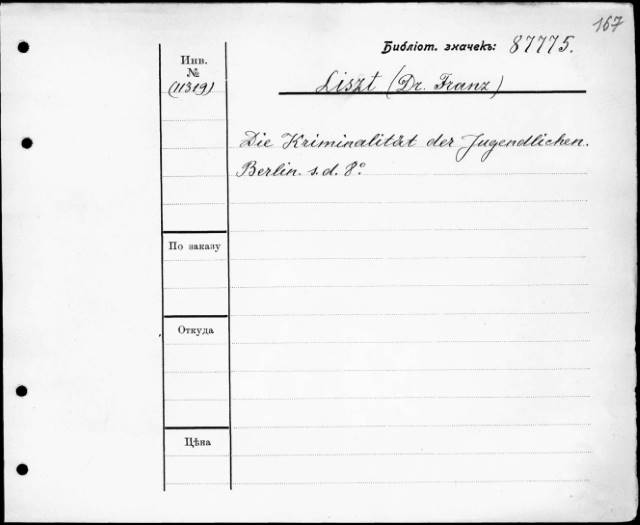 167
Библіот. значекъ: 87775.
Инв.
№
(11319)
Liszt (Dr. Franz)
Die Kriminalität der Jugendlichen.
Berlin. s.d. 8°
По заказу
Откуда
Цѣна